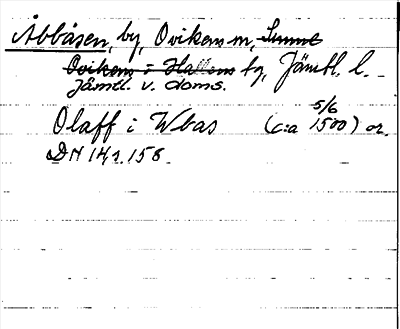 Åbbåsen, by, Ovikens sn, Sunne
Ovikens i Hallens tg, Jämtl. l.
Jämtl. v. doms.
5/6
Olaff i Wbas (c:a 1500) or.
DN 14 1.158.